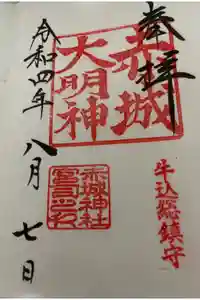 奉拝
赤城
大明神
牛込総鎮守
赤城神社
令和四年
八月
七日